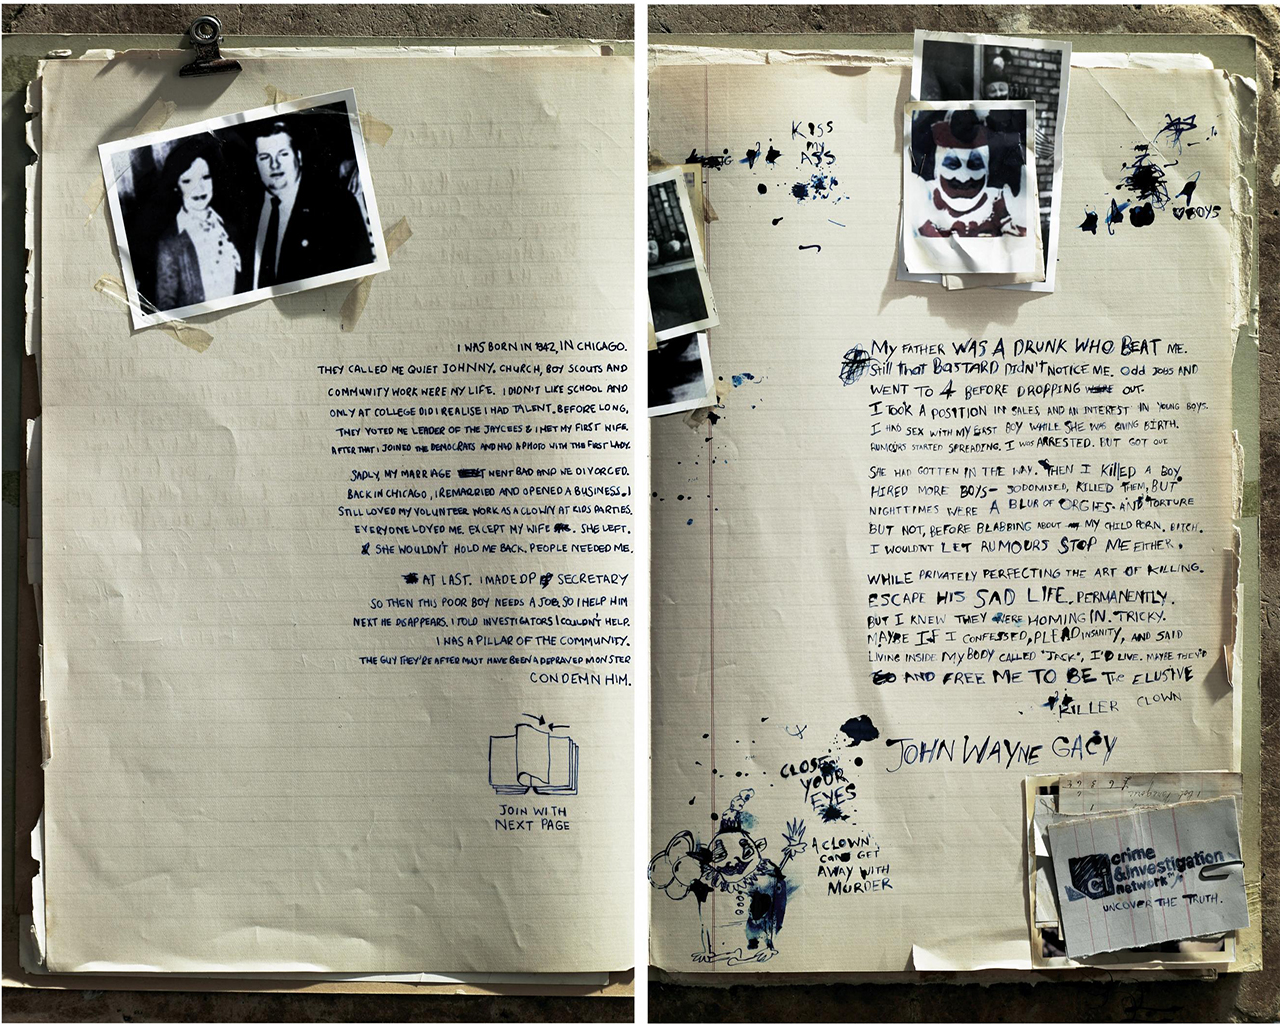 I WAS BORN IN 1942, IN CHICAGO.
THEY CALLED ME QUIET JOHNNY, CHURCH, BOY SCOUTS AND
COMMUNITY WORK WERE MY LIFE. I DIDN'T LIKE SCHOOL AND
ONLY AT COLLEGE DID I REALISE I HAD TALENT. BEFORE LONG,
THEY VOTED ME LEADER OF THE JAYCEES & I MET MY FIRST WIFE.
AFTER THAT I JOINED THE DEMOCRATS AND HAD A PHOTO WITH THE FIRST LADY.
SADLY, MY MARRIAGE WENT BAD AND WE DIVORCED.
BACK IN CHICAGO, I REMARRIED AND OPENED A BUSINESS. I
STILL LOVED MY VOLUNTEER WORK AS A CLOWN AT KIDS PARTIES.
EVERYONE LOVED ME, EXCEPT MY WIFE. SHE LEFT.
SHE WOULDN'T HOLD ME BACK. PEOPLE NEEDED ME.
AT LAST. I MADE DP SECRETARY
SO THEN THIS POOR BOY NEEDS A JOB, SO I HELP HIM
NEXT HE DISAPPEARS. I TOLD INVESTIGATORS I COULDN'T HELP.
I WAS A PILLAR OF THE COMMUNITY.
THE GUY THEY'RE AFTER MUST HAVE BEEN A DEPRAVED MONSTER
CONDEMN HIM.
JOIN WITH
NEXT PAGE
KISS
MY
ASS
♥ BOYS
MY FATHER WAS A DRUNK WHO BEAT ME.
Still that BASTARD DIDN'T NOTICE ME. Odd JOBS AND
WENT TO 4 BEFORE DROPPING OUT.
I TOOK A POSITION IN SALES AND AN INTEREST IN YOUNG BOYS.
I HAD SEX WITH MY FIRST BOY WHILE SHE WAS GIVING BIRTH.
RUMOURS STARTED SPREADING. I WAS ARRESTED. BUT GOT OUT
SHE HAD GOTTEN IN THE WAY. THEN I KILLED A BOY.
HIRED MORE BOYS- SODOMISED, KILLED THEM, BUT
NIGHTTIMES WERE A BLUR OF ORGIES. AND TORTURE
BUT NOT, BEFORE BLABBING ABOUT MY CHILD PORN. BITCH.
I WOULDN'T LET RUMOURS STOP ME EITHER.
WHILE PRIVATELY PERFECTING THE ART OF KILLING.
ESCAPE HIS SAD LIFE. PERMANENTLY.
BUT I KNEW THEY WERE HOMING IN. TRICKY.
MAYBE IF I CONFESSED, PLEAD INSANITY, AND SAID
LIVING INSIDE MY BODY CALLED "JACK", I'D LIVE. MAYBE THEY'D
GO AND FREE ME TO BE The ELUSIVE
KILLER CLOWN
JOHN WAYNE GACY
CLOSE
YOUR
EYES
A CLOWN
CAN GET
AWAY WITH
MURDER
crime
&investigation
network
UNCOVER THE TRUTH.